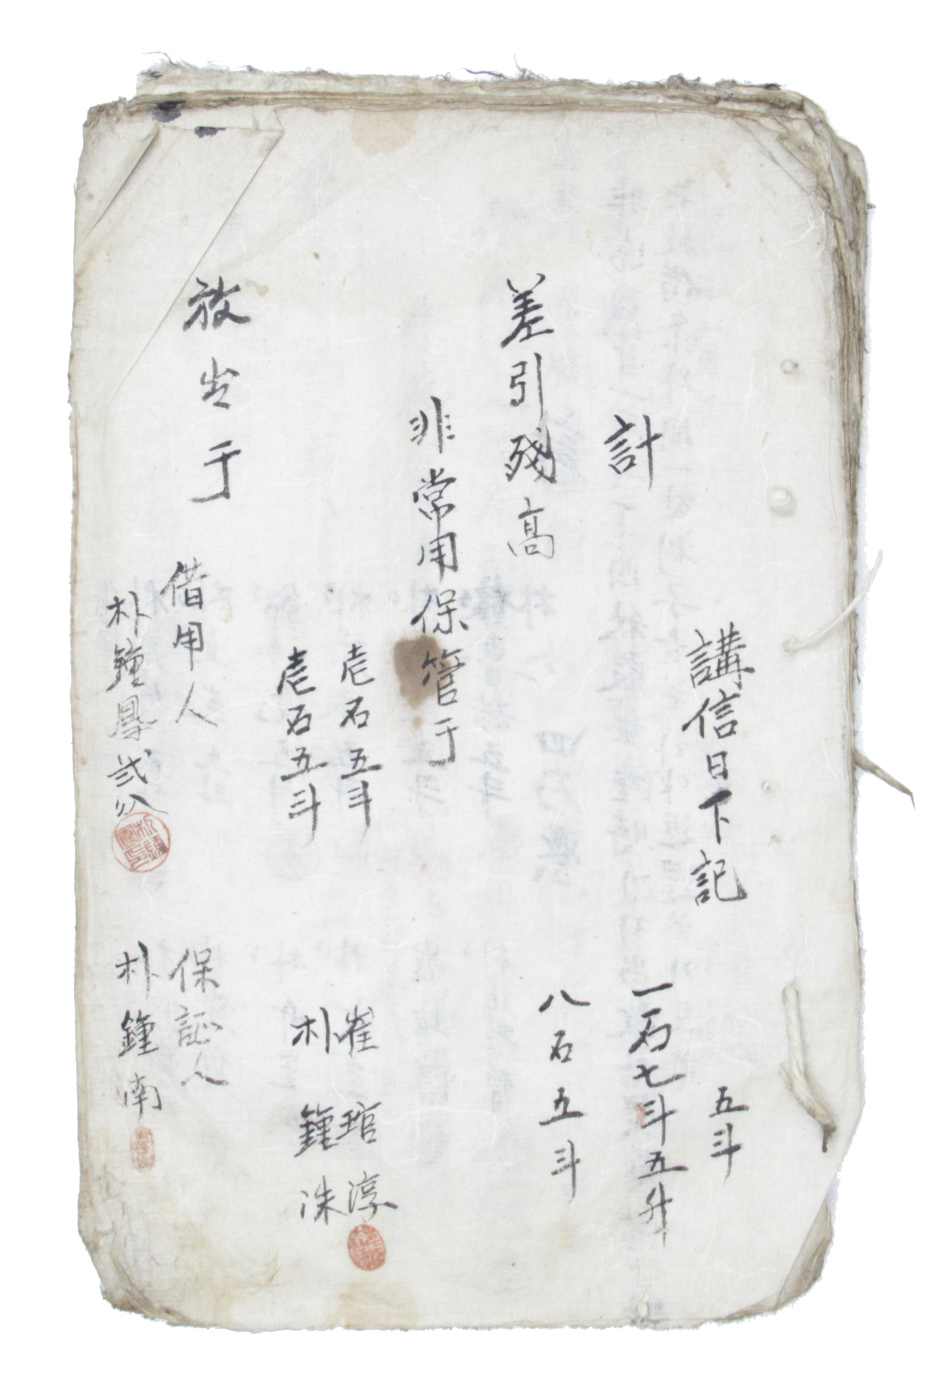 講信日下記 五斗
計 一石七斗五升
差引残高 八石五斗
非常用保管于
壱石五斗 崔琯淳
壱石五斗 朴鍾洙
放出于
借用人 保証人
朴鐘鳳 弐叺 朴鍾南